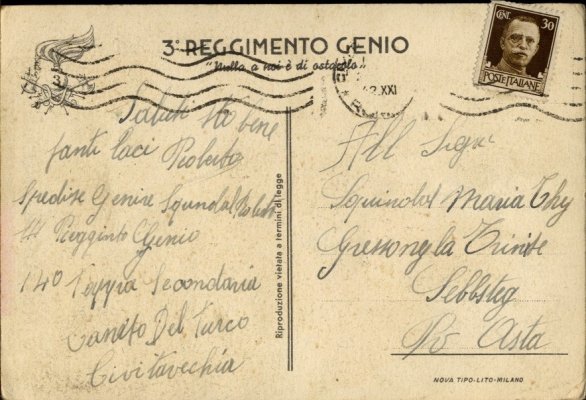 3° REGGIMENTO GENIO
"Nulla a noi è di ostacolo"
CENT. 30
POSTE ITALIANE
XXI
Saluti Sto bene
tanti baci Roberto
Spedisce Geniere Squindol Roberto
Reggimto Genio
Secondaria
Del Turco
Civitavechia
Riproduzione vietata a termini di legge
All Sigr
Squindol Maria Thy
Gressoney la Trinite
Pro Aosta
NOVA TIPO-LITO-MILANO